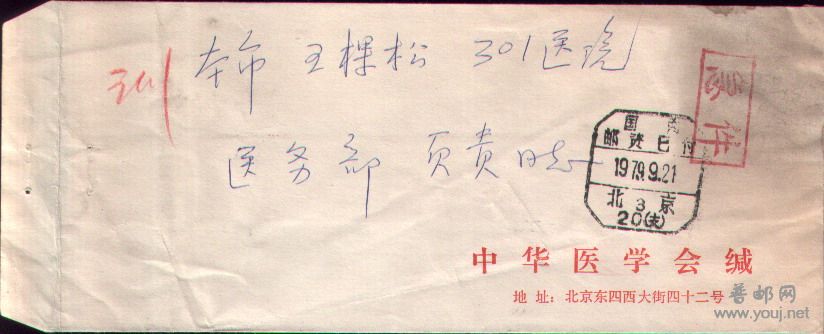 301
本市 五棵松 301医院
医务部 贵同志
国内
邮资已付
1979.9.21
北 3 京
20(支)
中华医学会缄
地 址：北京东四西大街四十二号
普邮网
www.youj.net